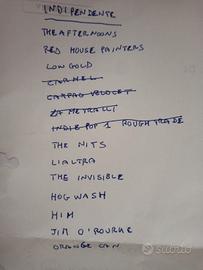 INDIPENDENTE
THE AFTERNOONS
RED HOUSE PAINTERS
LOW GOLD
CARMEL
INDIE POP 1 ROUGH TRADE
THE NITS
LIALTRA
THE INVISIBLE
HOGWASH
HIM
JIM O'ROURKE
ORANGE CAN
subito